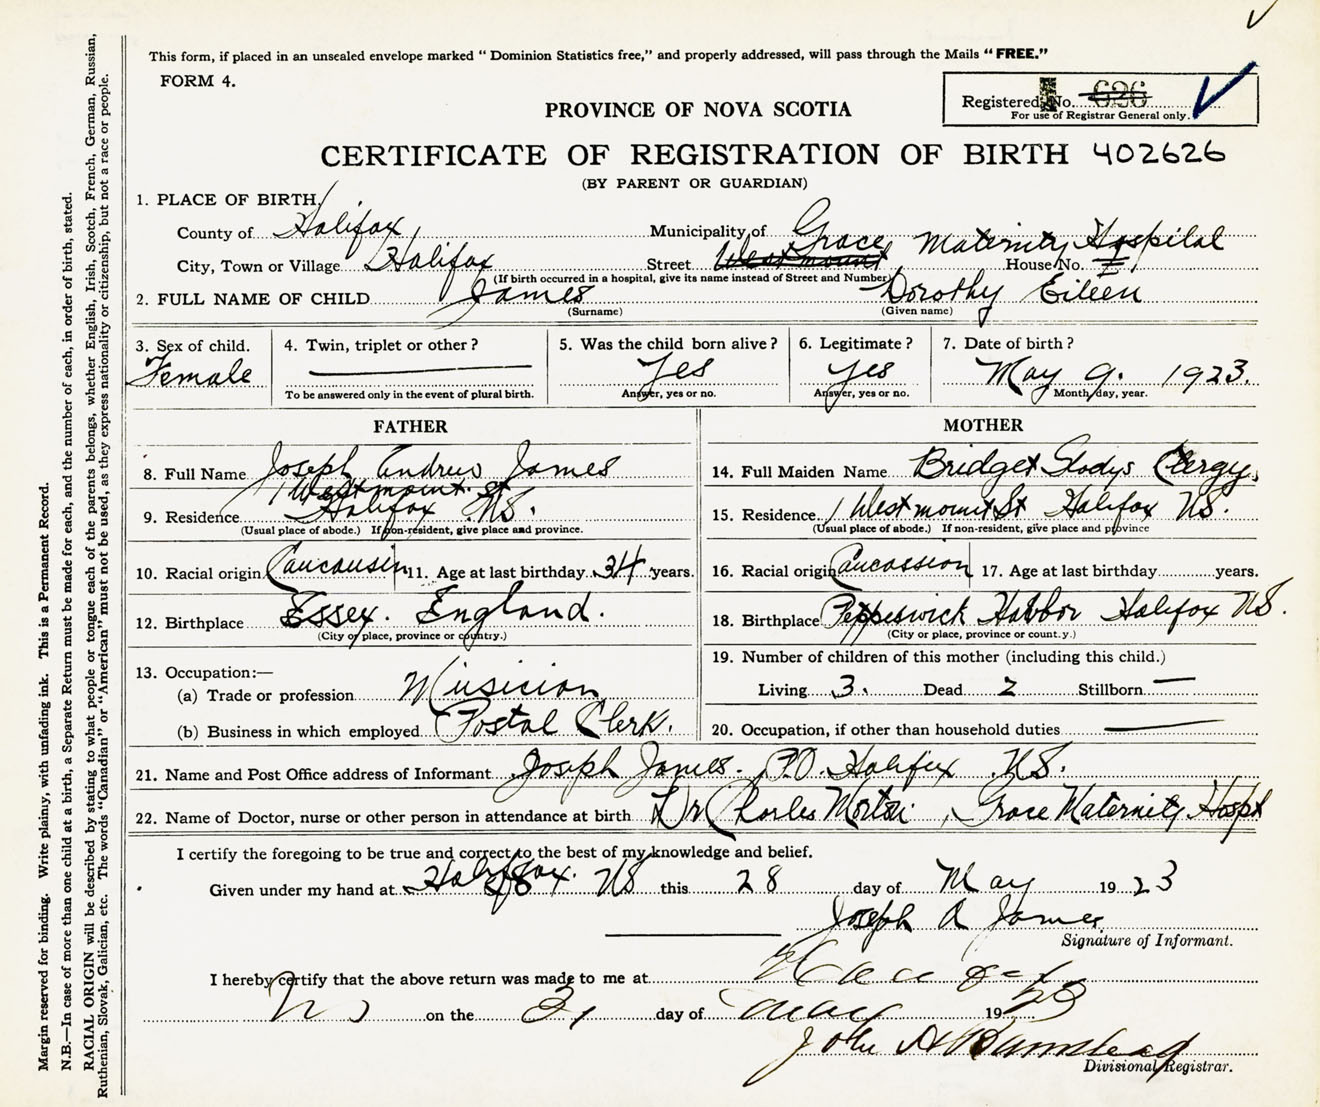 This form, if placed in an unsealed envelope marked “ Dominion Statistics free,” and properly addressed, will pass through the Mails “ FREE.”
FORM 4.
Registered No. 626
For use of Registrar General only.
PROVINCE OF NOVA SCOTIA
CERTIFICATE OF REGISTRATION OF BIRTH 402626
(BY PARENT OR GUARDIAN)
1. PLACE OF BIRTH,
County of Halifax Municipality of Grace Maternity Hospital
City, Town or Village Halifax Street Westmount House No. 1
(If birth occurred in a hospital, give its name instead of Street and Number)
2. FULL NAME OF CHILD James Dorothy Eileen
(Surname) (Given name)
3. Sex of child. 4. Twin, triplet or other ? 5. Was the child born alive ? 6. Legitimate ? 7. Date of birth ?
Female Yes Yes May 9. 1923.
To be answered only in the event of plural birth. Answer, yes or no. Answer, yes or no. Month, day, year.
FATHER MOTHER
8. Full Name Joseph Andrew James 14. Full Maiden Name Bridget Gladys
1 Westmount St
9. Residence Halifax NS. 15. Residence 1 Westmount St Halifax NS.
(Usual place of abode.) If non-resident, give place and province. (Usual place of abode.) If non-resident, give place and province
10. Racial origin Caucausin 11. Age at last birthday 34 years. 16. Racial origin Caucassion 17. Age at last birthday years.
12. Birthplace Essex. England. 18. Birthplace Peppeswick Habbor Halifax NS.
(City or place, province or country.) (City or place, province or count.y.)
13. Occupation:— 19. Number of children of this mother (including this child.)
(a) Trade or profession Musician Living 3. Dead 2 Stillborn —
(b) Business in which employed Postal Clerk. 20. Occupation, if other than household duties
21. Name and Post Office address of Informant Joseph James. P.O. Halifax NS.
22. Name of Doctor, nurse or other person in attendance at birth Dr Charles Morton , Grace Maternity Hospt
I certify the foregoing to be true and correct to the best of my knowledge and belief.
Given under my hand at Halifax. NS this 28 day of May 1923
Joseph A James
Signature of Informant.
I hereby certify that the above return was made to me at
on the 31 day of May 1923
John A
Divisional Registrar.
Margin reserved for binding. Write plainly, with unfading ink. This is a Permanent Record.
N.B.—In case of more than one child at a birth, a Separate Return must be made for each, and the number of each, in order of birth, stated.
RACIAL ORIGIN will be described by stating to what people or tongue each of the parents belongs, whether English, Irish, Scotch, French, German, Russian,
Ruthenian, Slovak, Galician, etc. The words “Canadian” or “American” must not be used, as they express nationality or citizenship, but not a race or people.